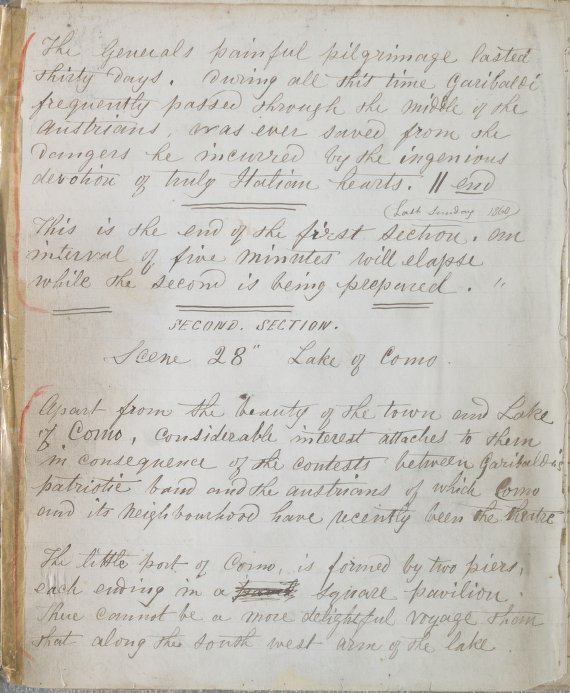 The Generals painful pilgrimage lasted
thirty days. During all this time Garibaldi
frequently passed through the middle of the
Austrians, was ever saved from the
dangers he incurred by the ingenious
devotion of truly Italian hearts. || end
(Last Sunday 1860)
This is the end of the first section. An
interval of five minutes will elapse
while the second is being prepared. "
SECOND. SECTION.
Scene 28" Lake of Como.
Apart from the beauty of the town and Lake
of Como, considerable interest attaches to them
in consequence of the contests between Garibaldi's
patriotic band and the Austrians of which Como
and its Neighbourhood have recently been the theatre
The little port of Como, is formed by two piers,
each ending in a square pavilion.
There cannot be a more delightful voyage than
that along the south west arm of the lake